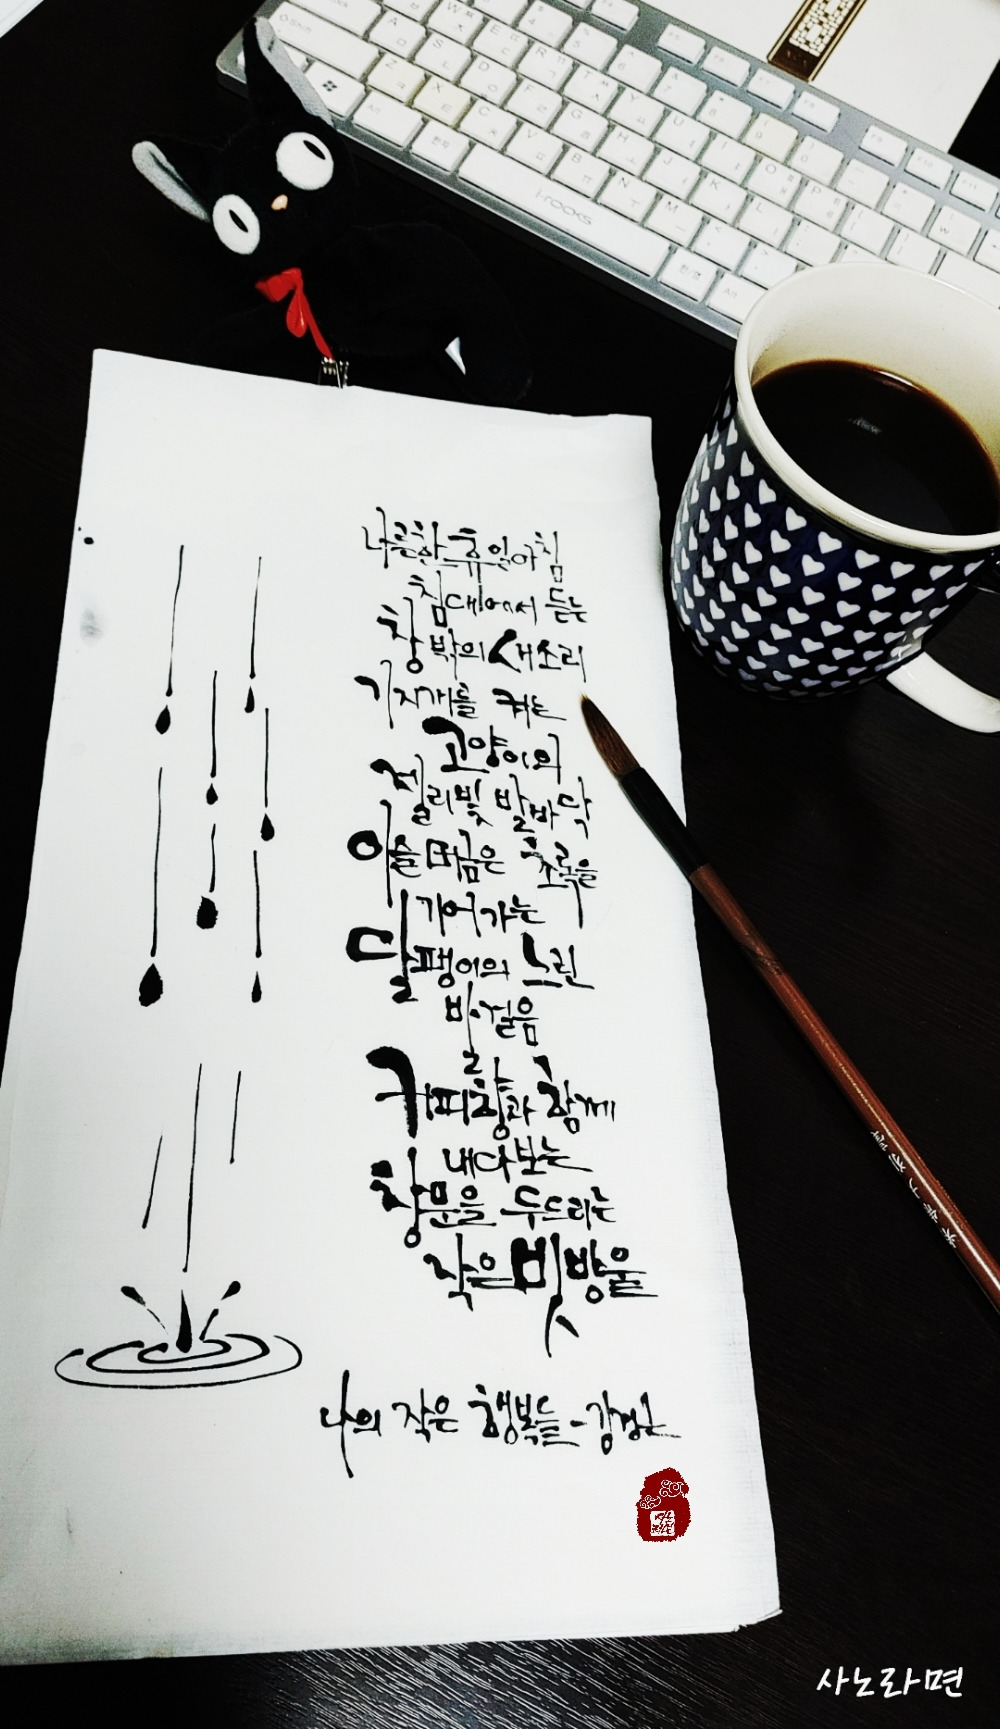 나른한 휴일 아침
침대에서 듣는
창밖의 새소리
기지개를 켜는
고양이의
젤리빛 발바닥
이슬 머금은 초록을
기어가는
달팽이의 느린
발걸음
커피향과 함께
내다보는
창문을 두드리는
작은 빗방울
나의 작은 행복들 - 강경근
i-rocks
사노라면